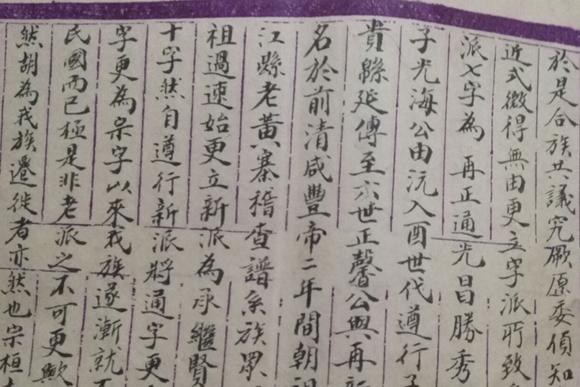 於是合族共議究厥原委偵知
近式微得無由更立字派所致
派七字為再正通光昌勝秀
子光海公由沅入酉世代遵行
貴縣延傳至六世正馨公與再新
名於前清咸豐帝二年間朝祖
江縣老黃寨稽查譜系族眾
祖過速始更立新派為承繼賢
十字然自遵行新派將通字更
字更為宗字以來我族遂漸就不
民國而已極是非老派之不可更歟
然胡為我族遷徙者亦然也宗桓